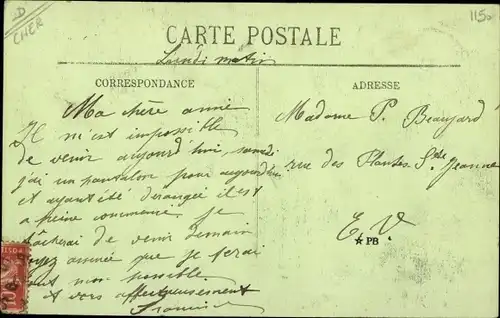 CHER
115
CARTE POSTALE
Lundi matin
CORRESPONDANCE
Ma chère amie
Il m'est impossible
de venir aujourd'hui, samedi
j'ai un pantalon pour aujourd'hui
et ayant été dérangée il est
a peine commencé. Je
tâcherai de venir demain
soyez assurée que je ferai
tout mon possible.
et vers affectueusement
ADRESSE
Madame P. Beaujard
rue des Plantes Ste Jeanne
E. V.
PB